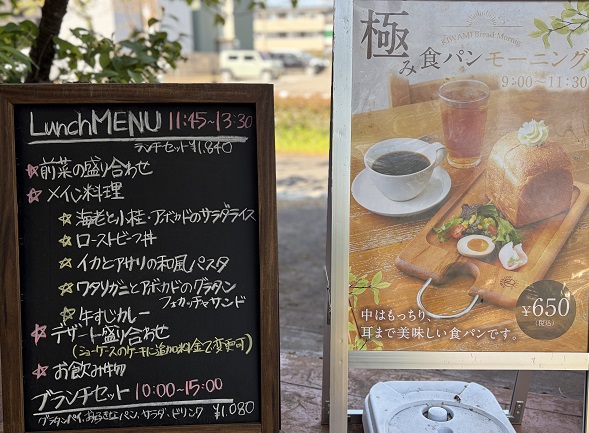 LunchMENU 11:45~13:30
ランチセット ¥1.840
前菜の盛り合わせ
メイン料理
海老と小柱・アボカドのサラダライス
ローストビーフ丼
イカとアサリの和風パスタ
ワタリガニとアボカドのグラタン
フォカッチャサンド
牛すじカレー
デザート盛り合わせ
(ショーケースのケーキに追加料金で変更可)
お飲み物
ブランチセット 10:00~15:00
グラタンパイ,お好きなパン,サラダ,ドリンク ¥1.080
極み食パンモーニング
KIWAMI Bread Morning
9:00～11:30
中はもっちり、
耳まで美味しい食パンです。
¥650
(税込)